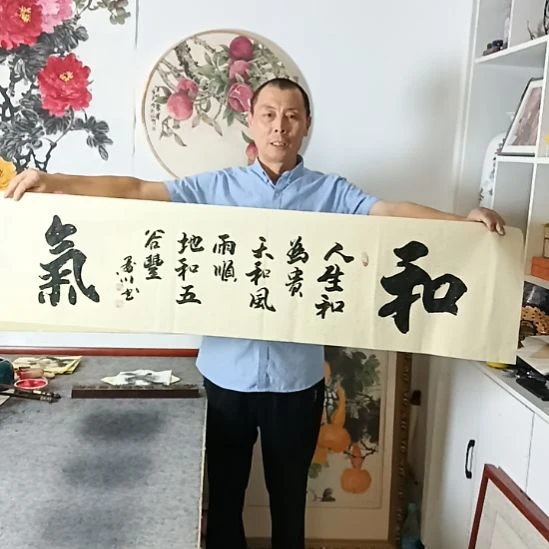 和
人生和
為貴
天和風
雨順
地和五
谷豐
氣